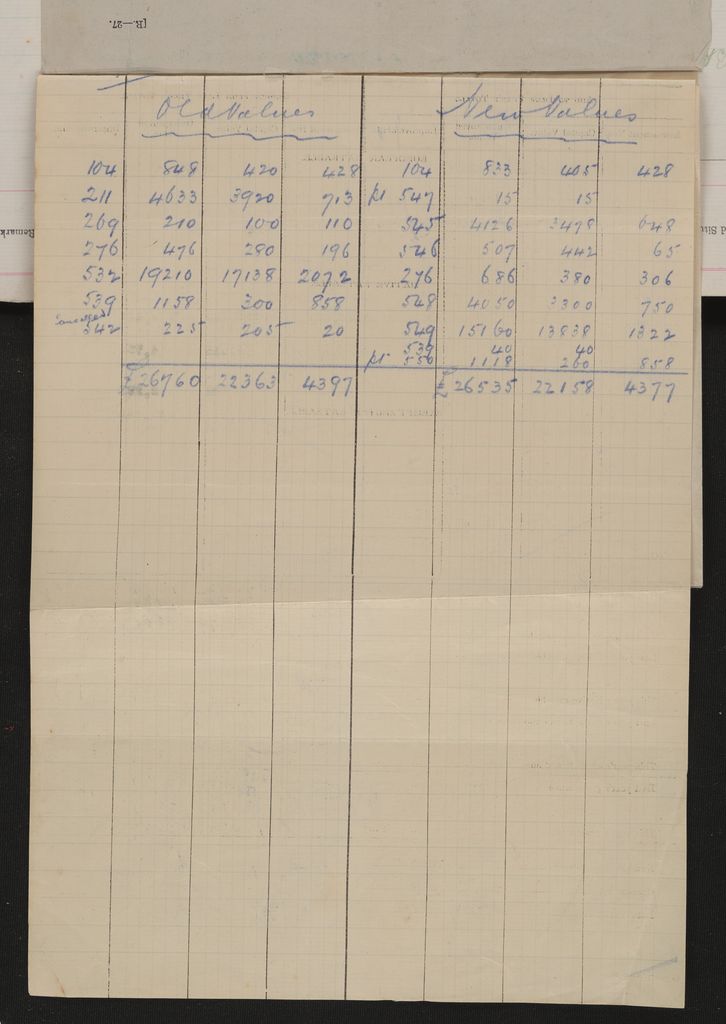 [B.—27.
Old Values New Values
104 848 420 428 104 833 405 428
211 4633 3920 713 pt 547 15 15
269 210 100 110 545 4126 3478 648
276 476 280 196 546 507 442 65
532 19210 17138 2072 276 686 380 306
539 1158 300 858 548 4050 3300 750
Cancelled
542 225 205 20 549 15160 13838 1322
539 40 40
pt 550 1118 260 858
£26760 22363 4397 £26535 22158 4377
Remark